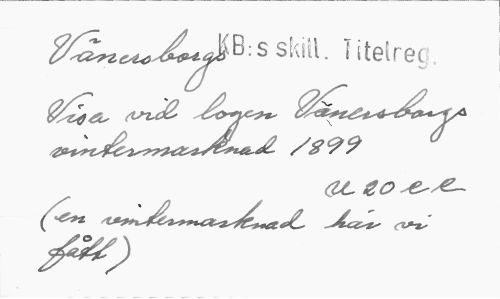 Vänersborgs KB:s skill. Titelreg.
Visa vid logen Vänersborgs
vintermarknad 1899
U 20 e e
(en vintermarknad här vi
fått)